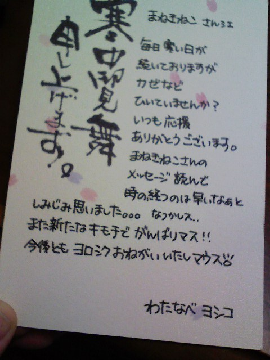 寒中見舞
申し上げます!。
まねきねこ さんうェ
毎日寒い日が
続いておりますが
カゼなど
ひいていませんか?
いつも応援
ありがとうございます。
まねきねこさんの
メッセージ読んで
時の経つのは早いなぁと
しみじみ思いました。。。なつかしス..
また新たなキモチで がんばりマス!!
今後とも ヨロシクおねがいいたしマウス
わたなべ ヨシコ